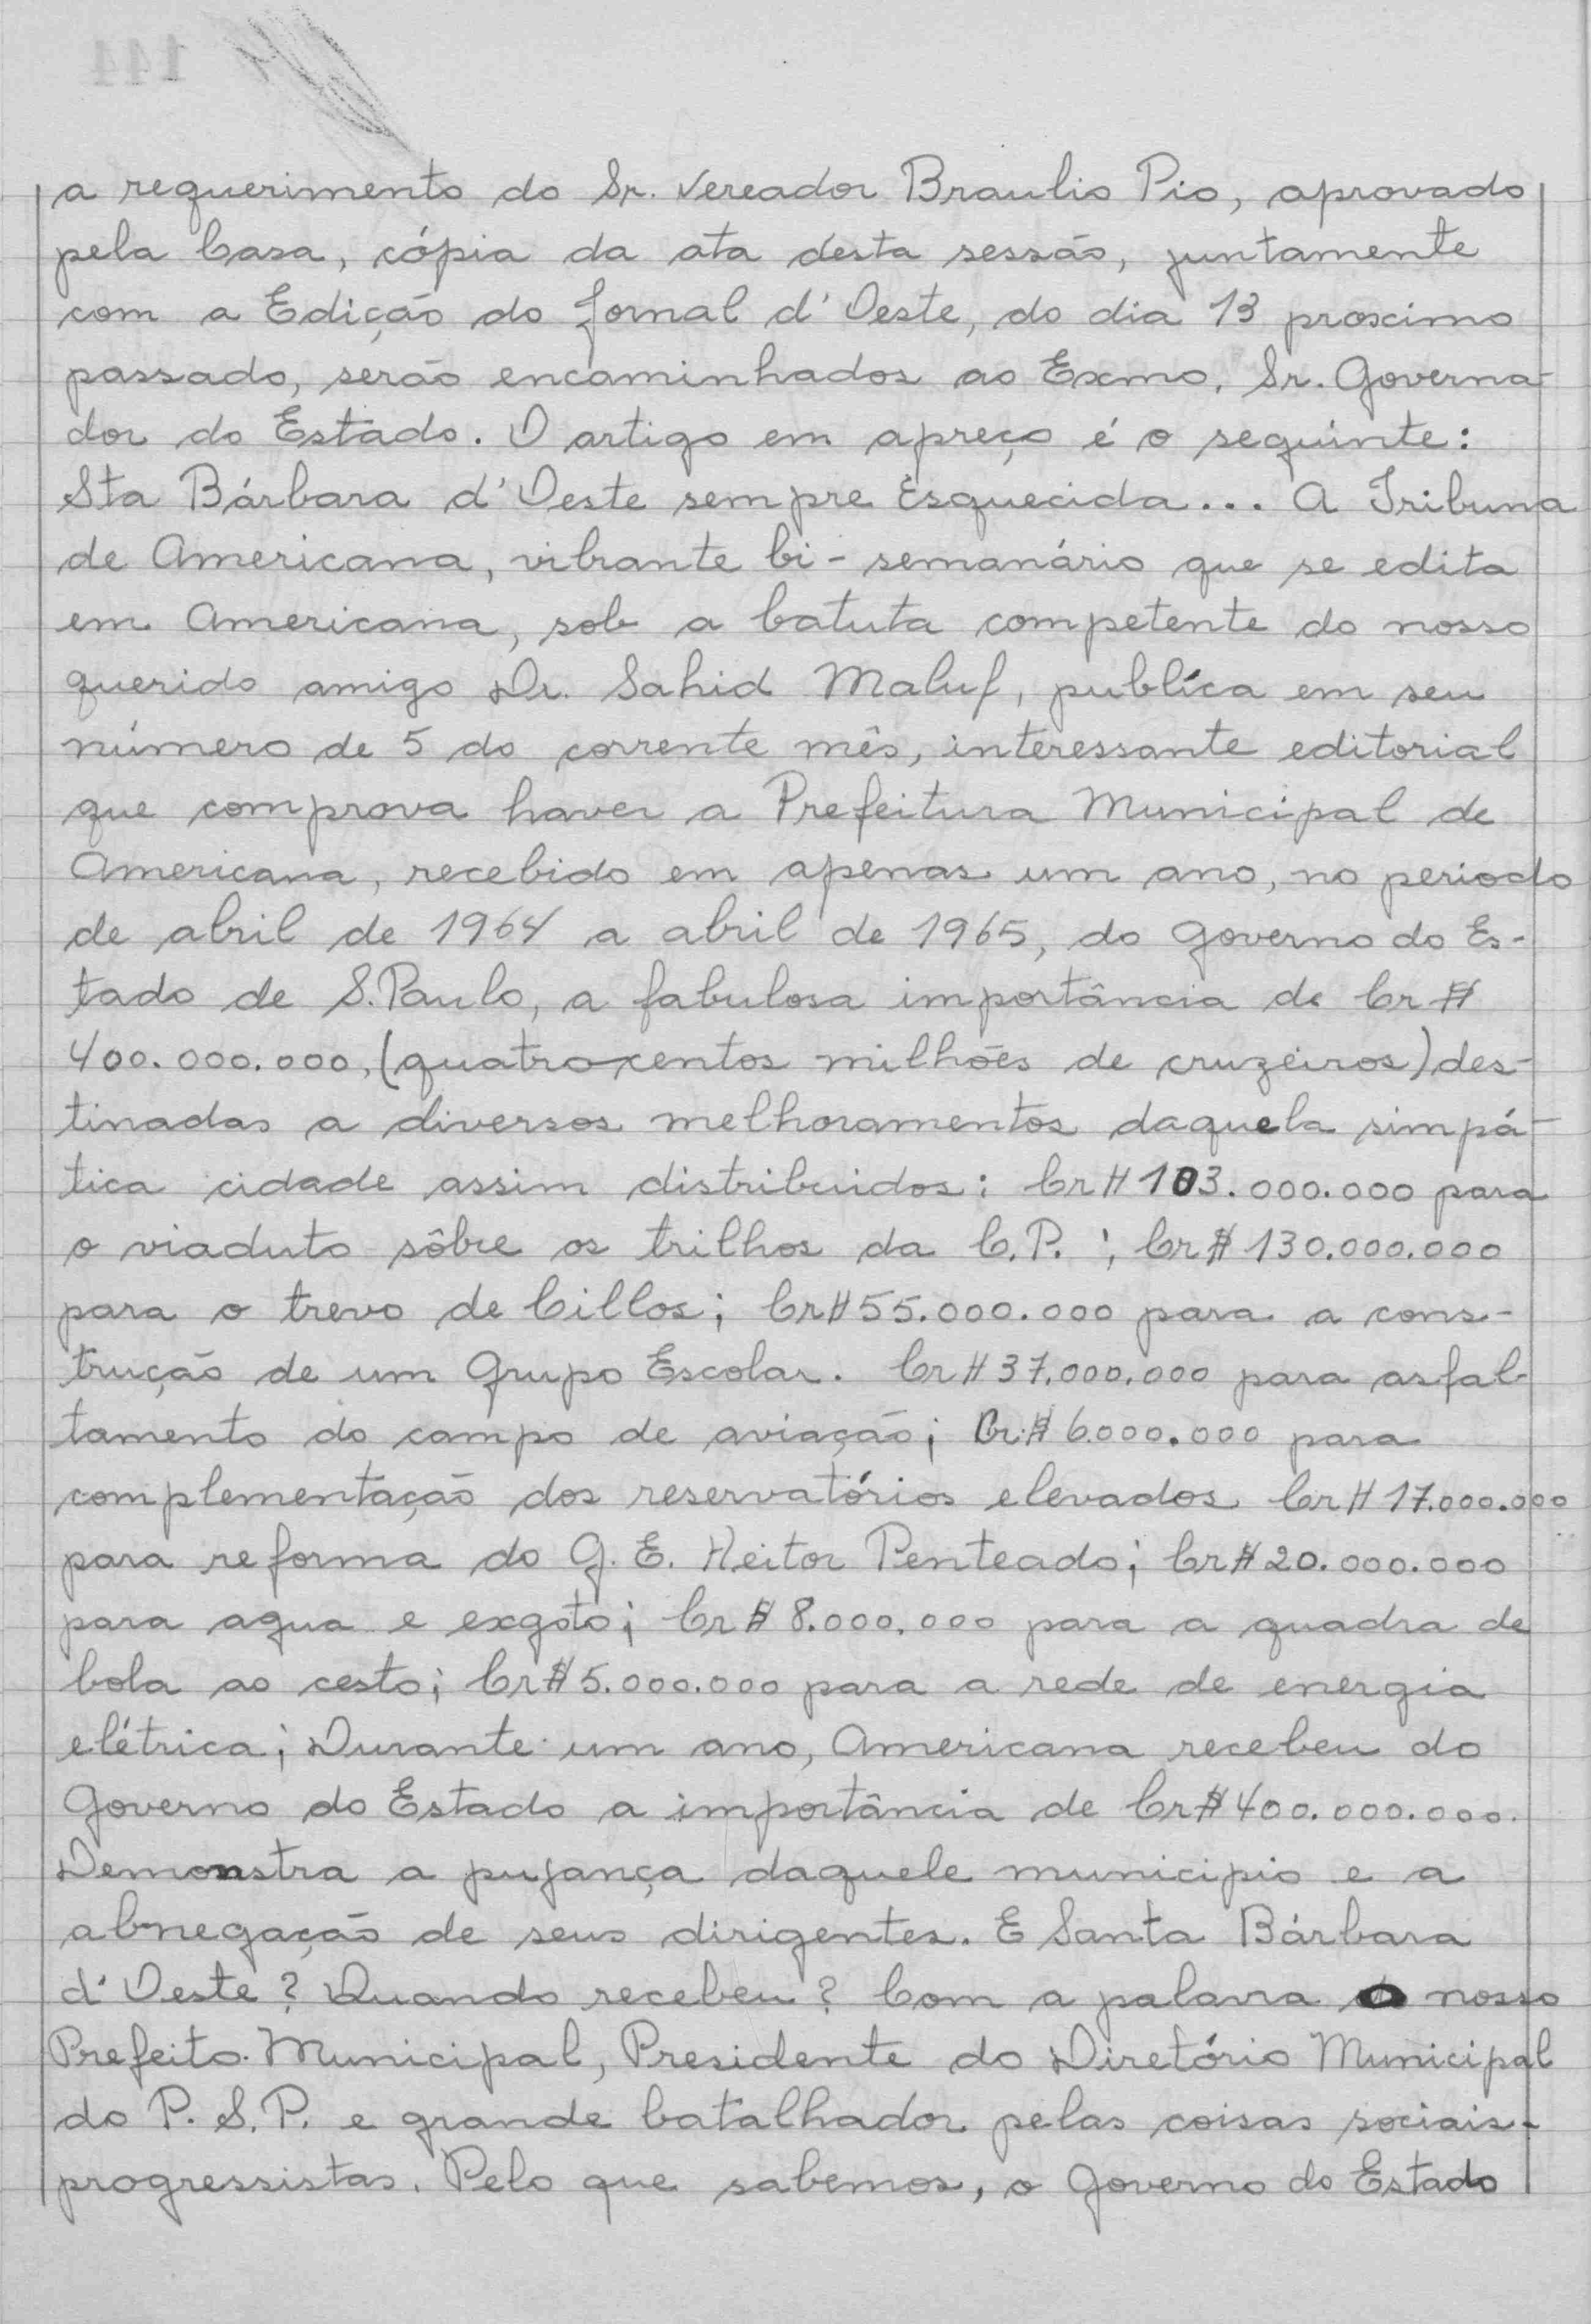 a requerimento do Sr. Vereador Braulio Pio, aprovado
pela Casa, cópia da ata desta sessão, juntamente
com a Edição do Jornal d'Oeste, do dia 13 proximo
passado, serão encaminhados ao Exmo. Sr. Governa-
dor do Estado. O artigo em apreço é o seguinte:
Sta Bárbara d'Oeste sempre Esquecida... A Tribuna
de Americana, vibrante bi-semanário que se edita
em Americana, sob a batuta competente do nosso
querido amigo Dr. Sahid Maluf, publíca em seu
número de 5 do corrente mês, interessante editorial
que comprova haver a Prefeitura Municipal de
Americana, recebido em apenas um ano, no periodo
de abril de 1964 a abril de 1965, do Governo do Es-
tado de S.Paulo, a fabulosa importância de Cr$
400.000.000, (quatrocentos milhões de cruzeiros) des-
tinadas a diversos melhoramentos daquela simpá-
tica cidade assim distribuidos: Cr$ 103.000.000 para
o viaduto sôbre os trilhos da C.P. ; Cr$ 130.000.000
para o trevo de Cillos; Cr$ 55.000.000 para a cons-
trução de um Grupo Escolar. Cr$ 37.000.000 para asfal-
tamento do campo de aviação; Cr$ 6.000.000 para
complementação dos reservatórios elevados Cr$ 17.000.000
para reforma do G. E. Heitor Penteado; Cr$ 20.000.000
para agua e exgoto; Cr$ 8.000.000 para a quadra de
bola ao cesto; Cr$ 5.000.000 para a rede de energia
elétrica; Durante um ano, Americana recebeu do
Governo do Estado a importância de Cr$ 400.000.000.
Demonstra a pujança daquele municipio e a
abnegação de seus dirigentes. E Santa Bárbara
d'Oeste? Quando recebeu? Com a palavra o nosso
Prefeito Municipal, Presidente do Diretório Municipal
do P. S. P. e grande batalhador pelas coisas sociais-
progressistas. Pelo que sabemos, o Governo do Estado